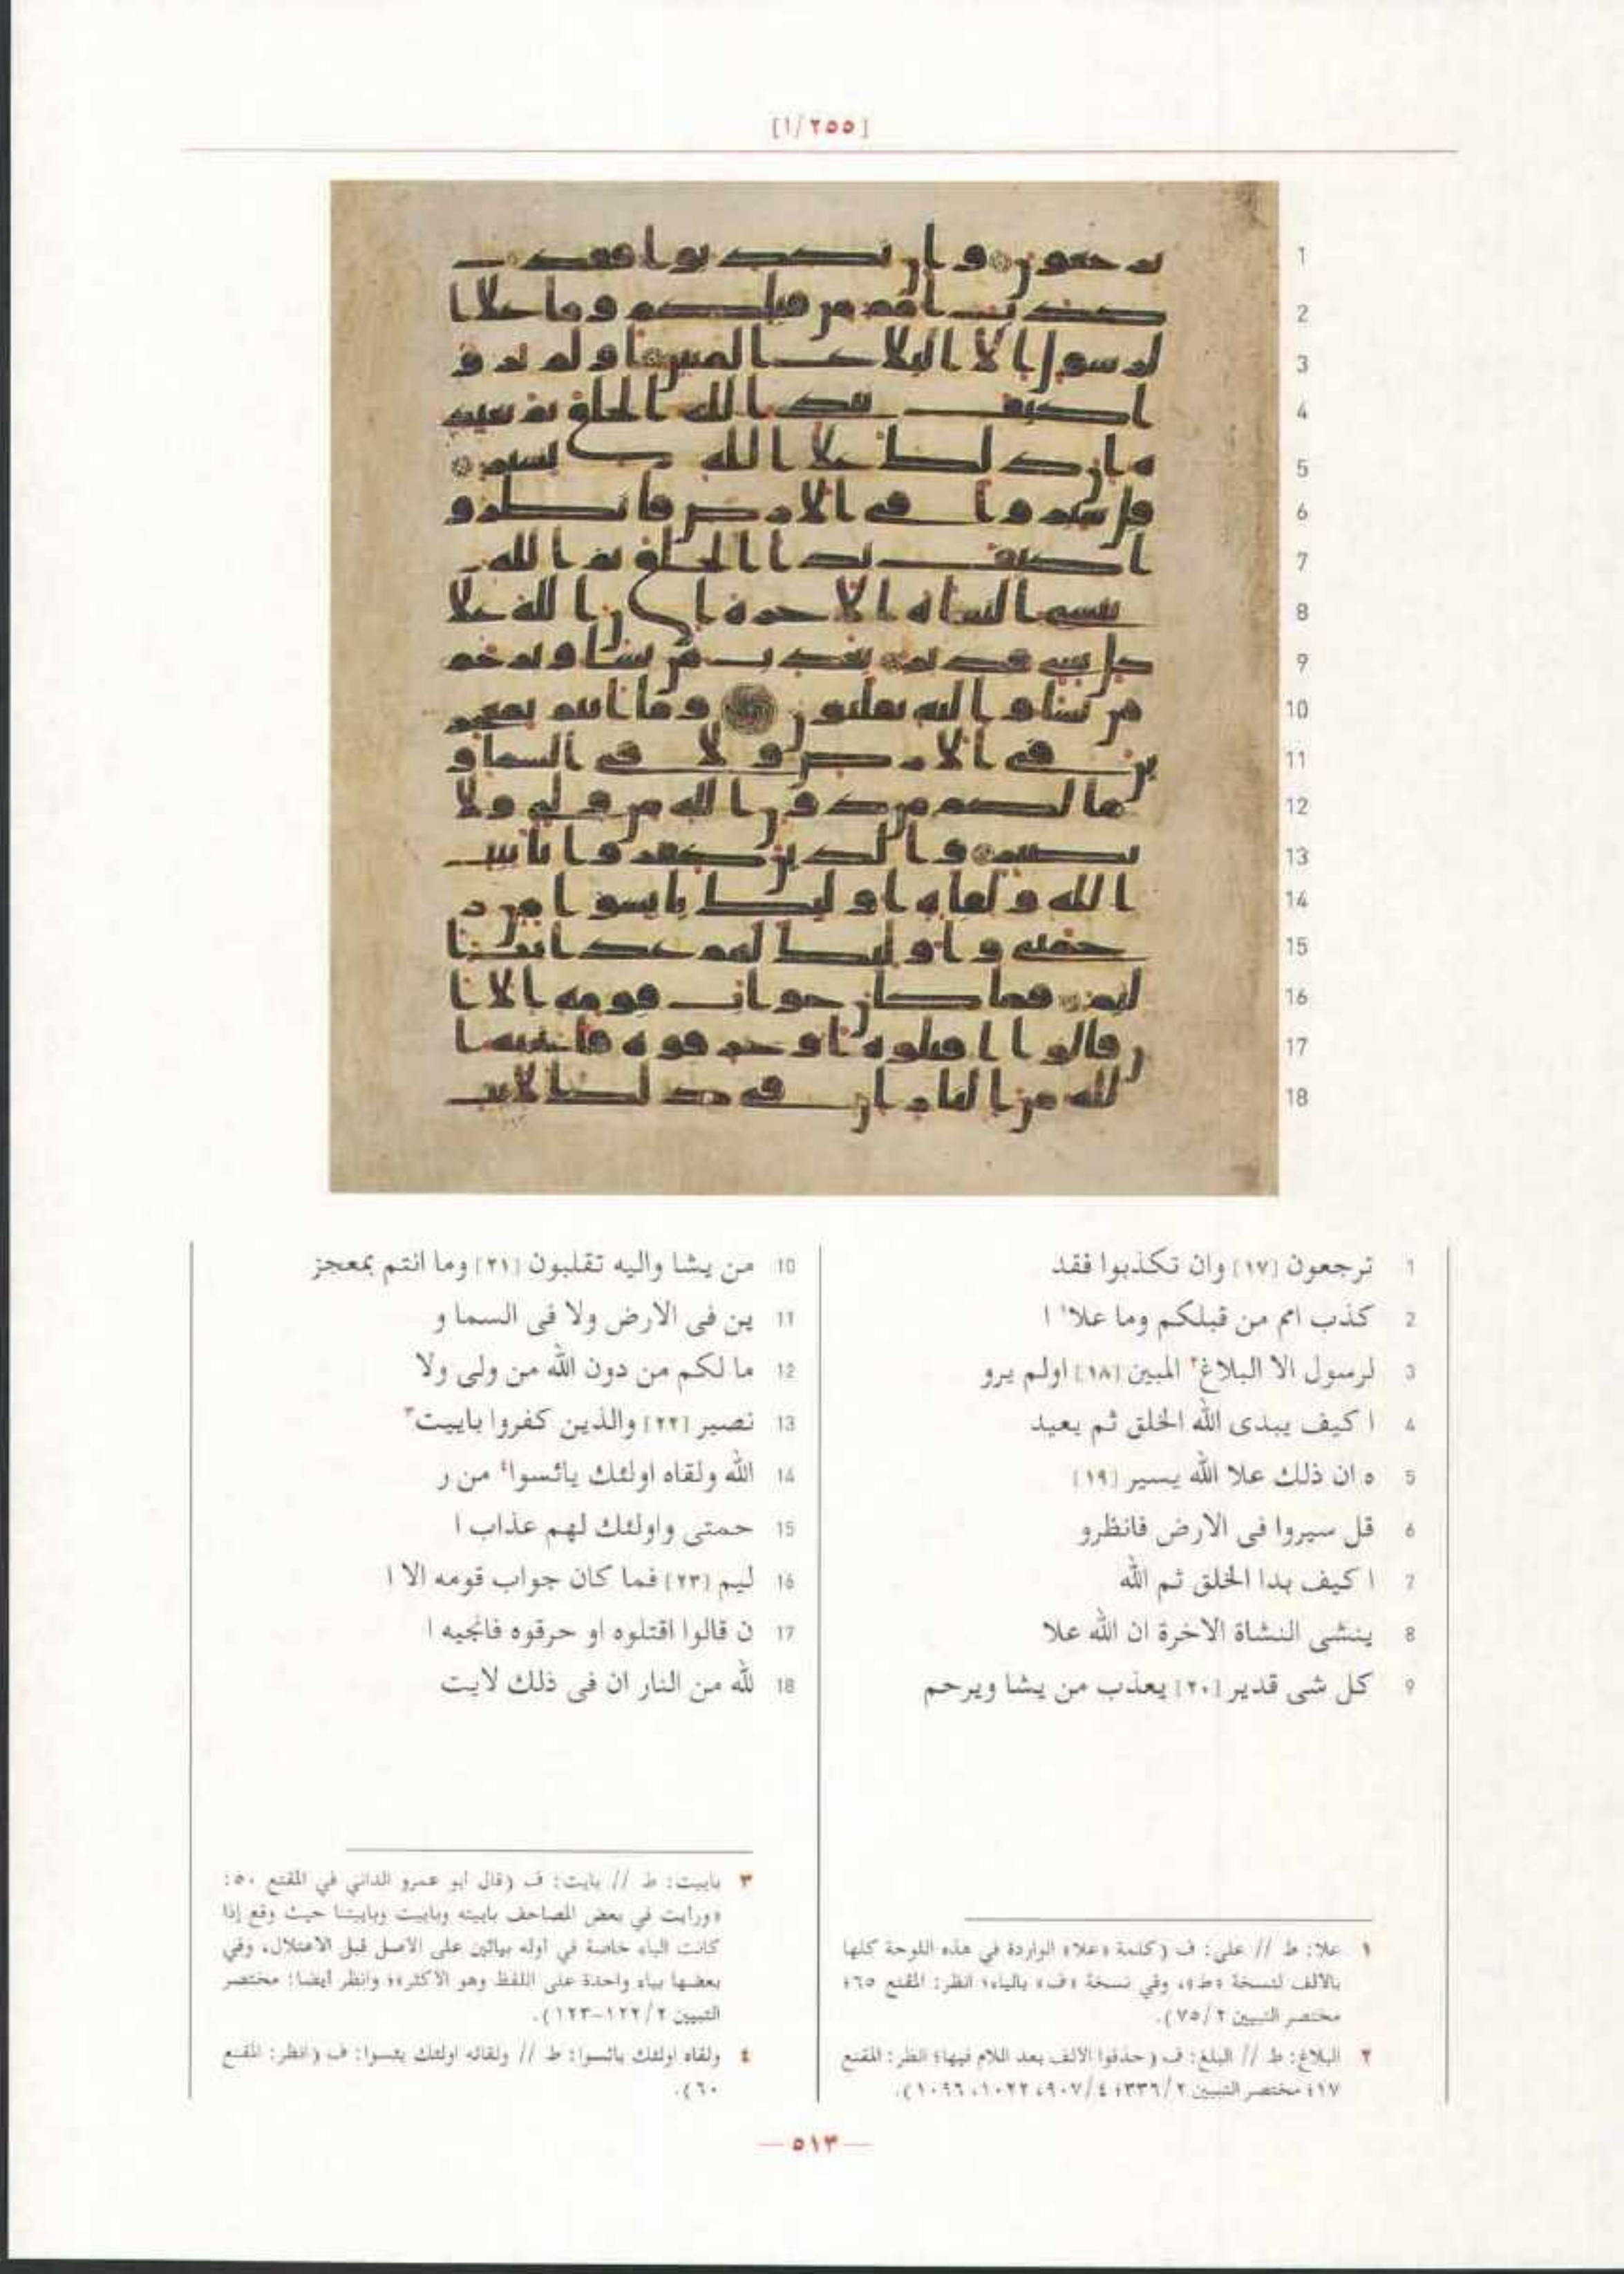 [٢٥٥/١]
1 ترجعون [١٧] وان تكذبوا فقد
2 كذب امم من قبلكم وما علا١ ا
3 لرسول الا البلاغ٢ المبين [١٨] اولم يرو
4 ا كيف يبدى الله الخلق ثم يعيد
5 ه ان ذلك علا الله يسير [١٩]
6 قل سيروا فى الارض فانظرو
7 ا كيف بدا الخلق ثم الله
8 ينشى النشاة الاخرة ان الله علا
9 كل شى قدير [٢٠] يعذب من يشا ويرحم
10 من يشا واليه تقلبون [٢١] وما انتم بمعجز
11 ين فى الارض ولا فى السما و
12 ما لكم من دون الله من ولى ولا
13 نصير [٢٢] والذين كفروا باييت٣
14 الله ولقاه اولئك يائسوا٤ من ر
15 حمتى واولئك لهم عذاب ا
16 ليم [٢٣] فما كان جواب قومه الا ا
17 ن قالوا اقتلوه او حرقوه فانجيه ا
18 لله من النار ان فى ذلك لايت
١ علا: ط // على: ف (كلمة «علا» الواردة في هذه اللوحة كلها
بالالف لنسخة «ط»، وفي نسخة «ف» بالياء؛ انظر: المقنع ٦٥؛
مختصر التبيين ٧٥/٢).
٢ البلاغ: ط // البلغ: ف (حذفوا الالف بعد اللام فيها؛ انظر: المقنع
١٧؛ مختصر التبيين ٣٣٦/٢؛ ٩٠٧/٤، ١٠٢٢، ١٠٩٦).
٣ باييت: ط // بايت: ف (قال ابو عمرو الداني في المقنع ٥٠:
«ورايت في بعض المصاحف باييته وباييت وباييتنا حيث وقع إذا
كانت الباء خاصة في اوله بيائين على الاصل قبل الاعتلال، وفي
بعضها بياء واحدة على اللفظ وهو الأكثر»؛ وانظر أيضا: مختصر
التبيين ١٢٢/٢-١٢٣).
٤ ولقاه اولئك يائسوا: ط // ولقائه اولئك يئسوا: ف (انظر: المقنع
٦٠).
— ٥١٣ —